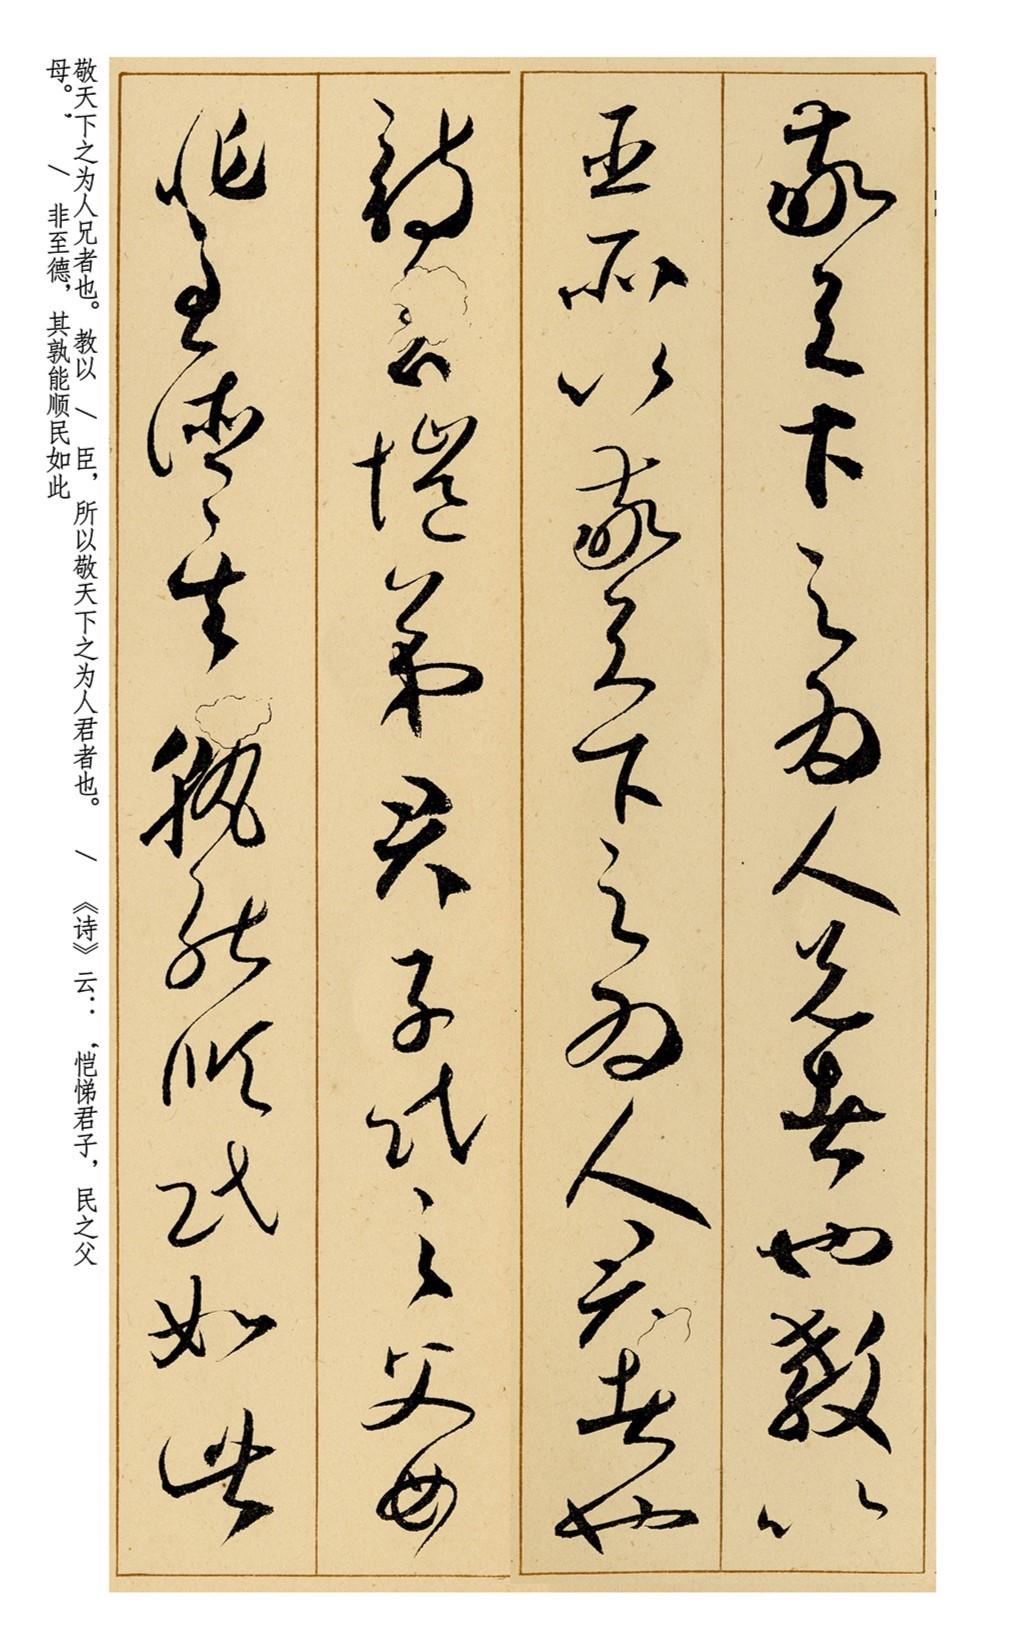 敬天下之為人兄者也教以
臣所以敬天下之為人君者也
詩云愷弟君子民之父母
非至德其孰能順民如此
敬天下之为人兄者也。教以 / 臣，所以敬天下之为人君者也。 / 《诗》云：“恺悌君子，民之父
母。” / 非至德，其孰能顺民如此